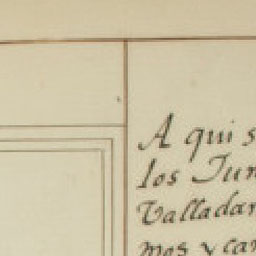 A qui s
los Jun
Valladar
mos y can